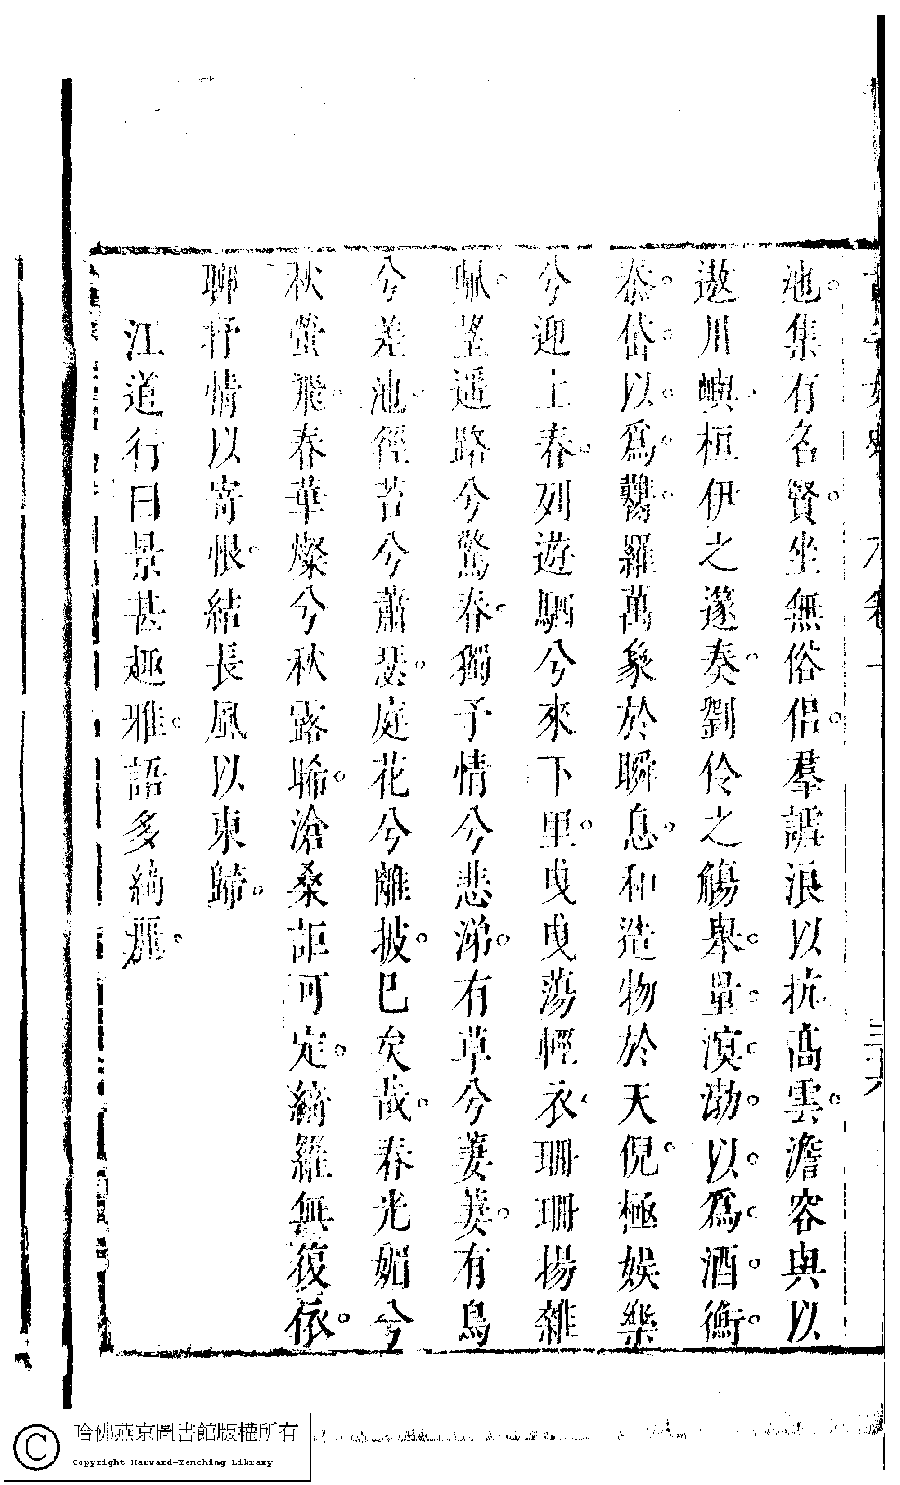 池集有名賢坐無俗侶羣謔浪以抗高雲澹容與以
遨川嶼桓伊之邃奏劉伶之觴舉量溟渤以爲酒衡
泰岱以爲鬻羅萬象於瞬息和造物於天倪極娱樂
兮迎上春列遊駟兮來下里曳曳蕩輕衣珊珊揚雜
珮望遥路兮驚春獨予情兮悲涕有草兮萋萋有鳥
兮差池徑苔兮蕭瑟庭花兮離披已矣哉春光媚兮
秋螢飛春華燦兮秋露晞滄桑詎可定綺羅無復依
聊抒情以寄恨結長風以東歸
江道行曰景甚趣雅語多綺麗
哈佛燕京圖書館版權所有
Copyright Harvard-Yenching Library